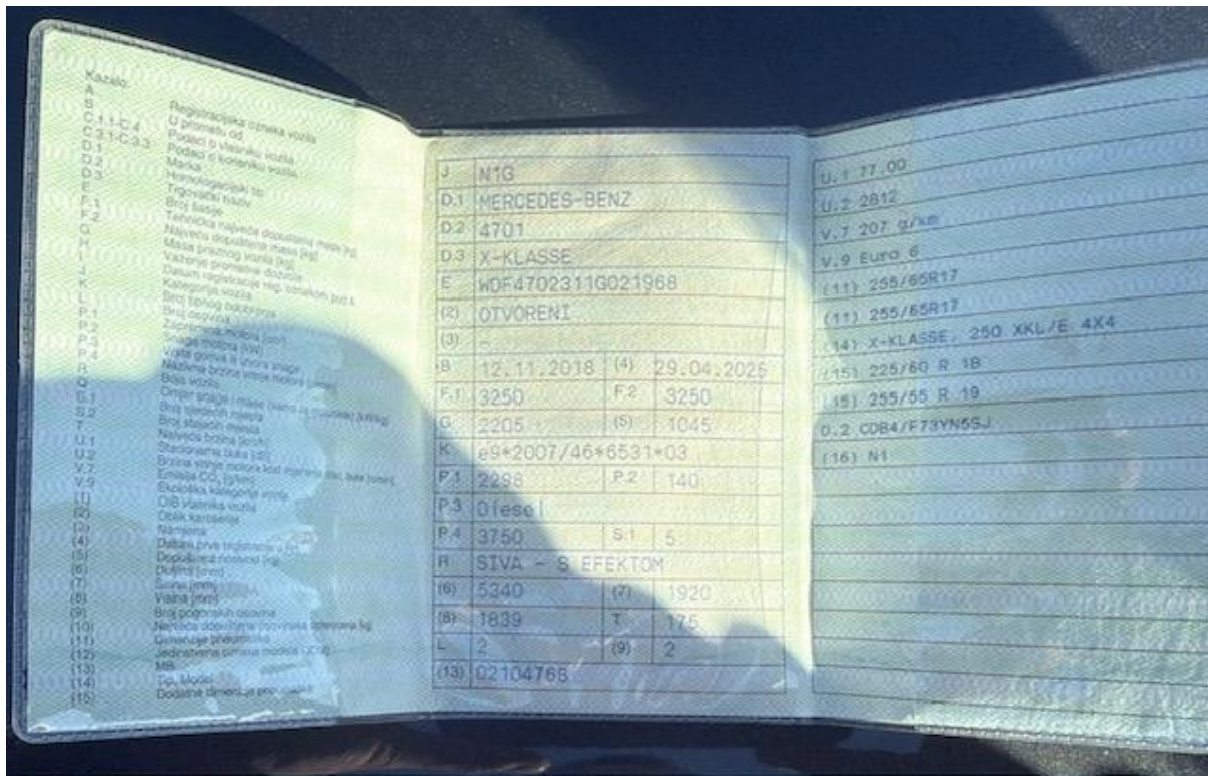 Kazalo:
A Registracijska oznaka vozila
B U prometu od
C.1.1-C.4 Podaci o vlasniku vozila
C.3.1-C.3.3 Podaci o korisniku vozila
D.1 Marka
D.2 Homologacijski tip
D.3 Trgovački naziv
E Broj šasije
F.1 Tehnička najveća dopuštena masa [kg]
F.2 Najveća dopuštena masa [kg]
G Masa praznog vozila [kg]
H Važenje prometne dozvole
I Datum registracije reg. oznakom pod A
J Kategorija vozila
K Broj tipnog odobrenja
L Broj osovina
P.1 Zapremina motora [cm³]
P.2 Snaga motora [kW]
P.3 Vrsta goriva ili izvora snage
P.4 Nazivna brzina vrtnje motora
R Boja vozila
Q Omjer snage i mase
S.1 Broj sjedećih mjesta
S.2 Broj stajaćih mjesta
T Najveća brzina [km/h]
U.1 Stacionarna buka [dB]
U.2 Brzina vrtnje motora kod
V.7 Emisija CO₂ [g/km]
V.9 Ekološka kategorija vozila
(1) OIB vlasnika vozila
(2) Oblik karoserije
(3) Namjena
(4) Datum prve registracije
(5) Dopuštena nosivost [kg]
(6) Duljina [mm]
(7) Širina [mm]
(8) Visina [mm]
(9) Broj pogonskih osovina
(10) Najveća dopuštena
(11) Dimenzije pneumatika
(12) Jedinstvena oznaka modela
(13) MB
(14) Tip, Model
(15) Dodatne dimenzije pneumatika
J N1G
D.1 MERCEDES-BENZ
D.2 4701
D.3 X-KLASSE
E WDF4702311G021968
(2) OTVORENI
(3) -
B 12.11.2018 (4) 29.04.2025
F.1 3250 F.2 3250
G 2205 (5) 1045
K e9*2007/46*6531*03
P.1 2298 P.2 140
P.3 Diesel
P.4 3750 S.1 5
R SIVA - S EFEKTOM
(6) 5340 (7) 1920
(8) 1839 T 175
L 2 (9) 2
(13) 02104768
U.1 77.00
U.2 2812
V.7 207 g/km
V.9 Euro 6
(11) 255/65R17
(11) 255/65R17
(14) X-KLASSE, 250 XKL/E 4X4
(15) 225/60 R 18
(15) 255/55 R 19
D.2 CDB4/F73YN5SJ
(16) N1